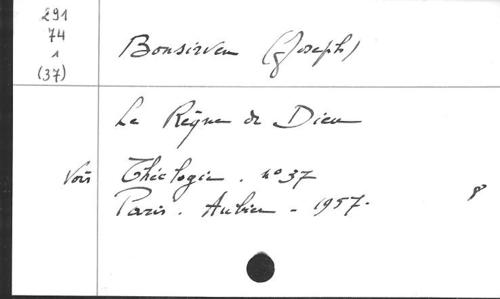 291
74
1
(37)
Bonsirven (Joseph)
Le Règne de Dieu
Voir Théologie . n° 37
Paris . Aubier - 1957.
8